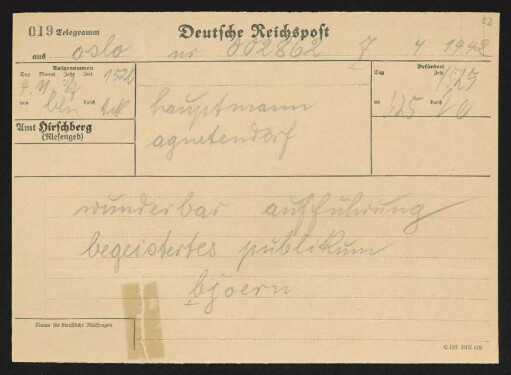 53
019 Telegramm Deutsche Reichspost
aus oslo nr 002862 7 4 1948
Aufgenommen
Tag Monat Jahr Zeit 1520
von bln durch
Befördert
Tag Zeit 1525
an durch
hauptmann
agnetendorf
Amt Hirschberg
(Riesengeb)
wunderbar aufführung
begeistertes publikum
bjoern
Raum für dienstliche Rückfragen
C 187 DIN 476